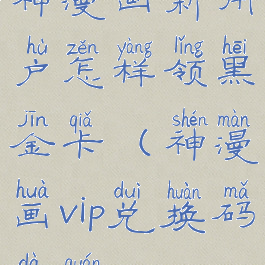 神漫画新用
hù zěn yàng lǐng hēi
户怎样领黑
jīn qiǎ shén màn
金卡（神漫
huà duì huàn mǎ
画vip兑换码
dà quán